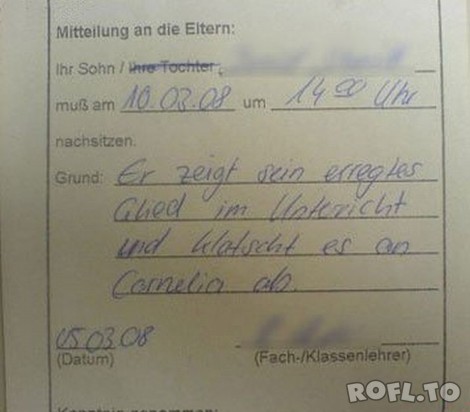 Mitteilung an die Eltern:
Ihr Sohn / Ihre Tochter,
muß am 10.03.08 um 14 00 Uhr
nachsitzen.
Grund: Er zeigt sein erregtes
Glied im Unterricht
und klatscht es an
Cornelia ab.
05.03.08
(Datum) (Fach-/Klassenlehrer)
ROFL.TO